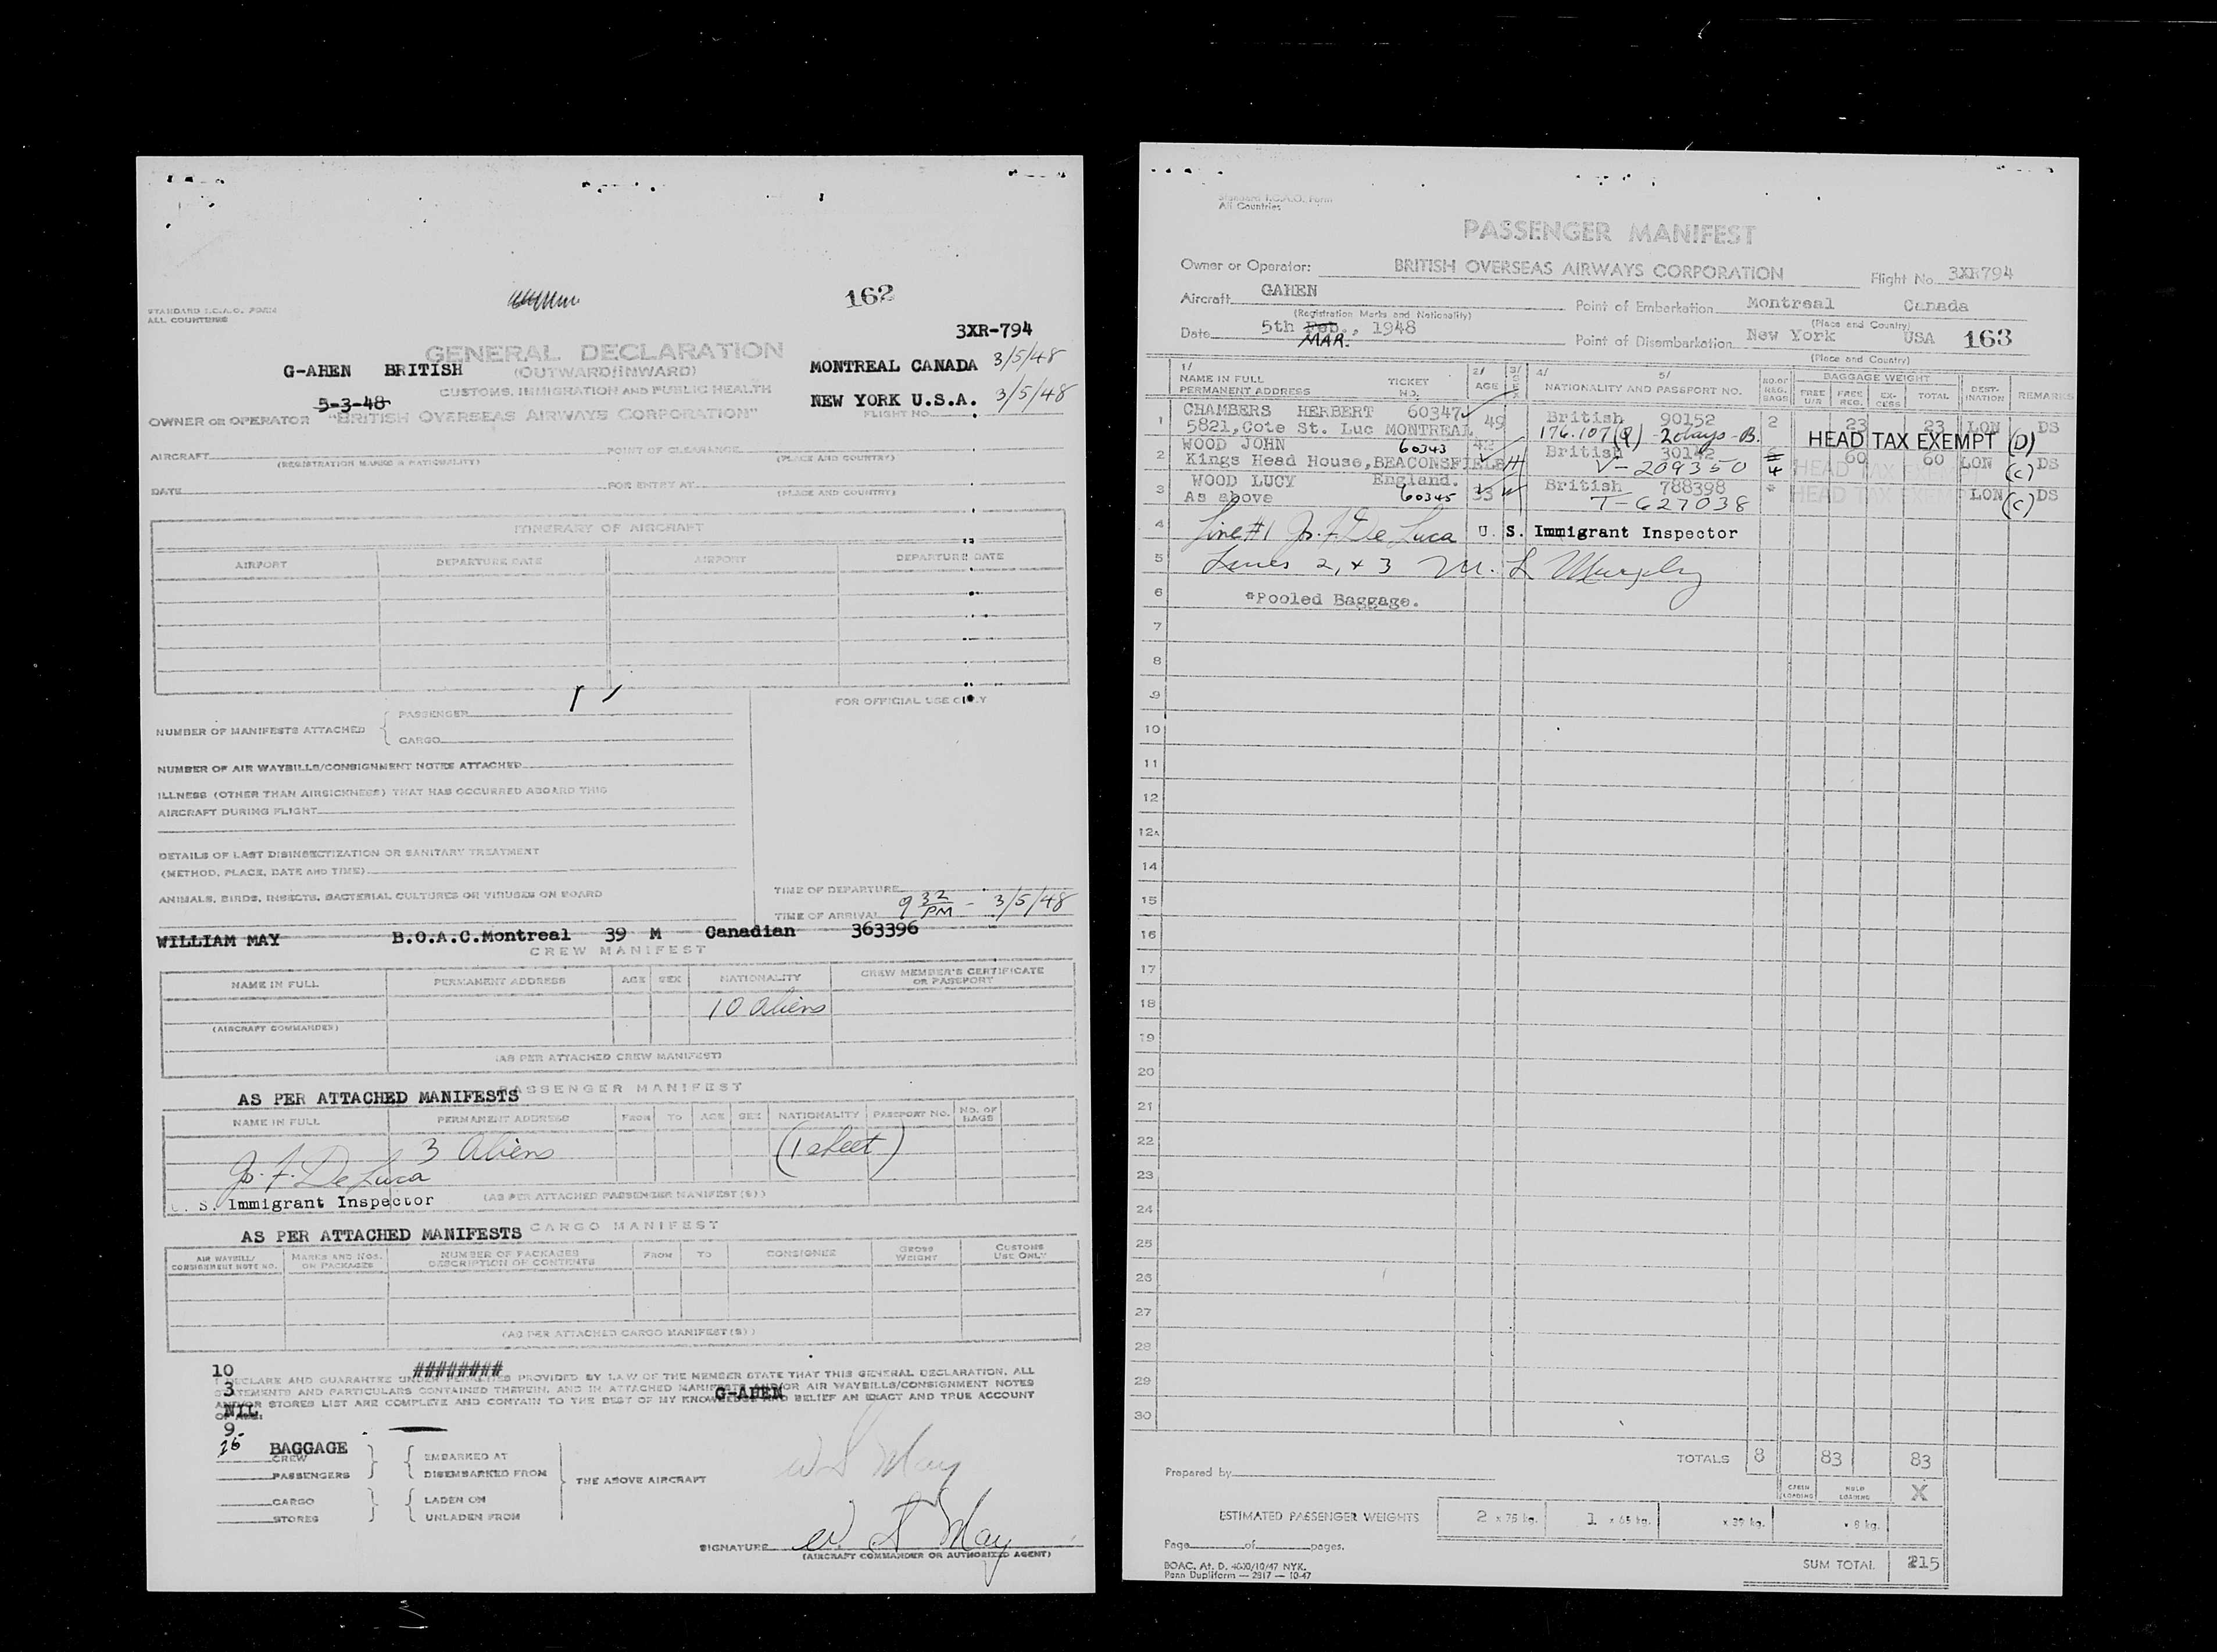 STANDARD I.C.A.O. FORM
ALL COUNTRIES
162
3XR-794
GENERAL DECLARATION
G-AHEN BRITISH (OUTWARD/INWARD) MONTREAL CANADA 3/5/48
CUSTOMS, IMMIGRATION AND PUBLIC HEALTH
5-3-48 NEW YORK U.S.A. 3/5/48
OWNER OR OPERATOR "BRITISH OVERSEAS AIRWAYS CORPORATION" FLIGHT NO.
AIRCRAFT POINT OF CLEARANCE
(REGISTRATION MARKS & NATIONALITY) (PLACE AND COUNTRY)
DATE FOR ENTRY AT
(PLACE AND COUNTRY)
ITINERARY OF AIRCRAFT
AIRPORT DEPARTURE DATE AIRPORT DEPARTURE DATE
FOR OFFICIAL USE ONLY
NUMBER OF MANIFESTS ATTACHED { PASSENGER
CARGO
NUMBER OF AIR WAYBILLS/CONSIGNMENT NOTES ATTACHED
ILLNESS (OTHER THAN AIRSICKNESS) THAT HAS OCCURRED ABOARD THIS
AIRCRAFT DURING FLIGHT
DETAILS OF LAST DISINSECTIZATION OR SANITARY TREATMENT
(METHOD, PLACE, DATE AND TIME)
ANIMALS, BIRDS, INSECTS, BACTERIAL CULTURES OR VIRUSES ON BOARD
TIME OF DEPARTURE
TIME OF ARRIVAL 9 32 PM - 3/5/48
WILLIAM MAY B.O.A.C.Montreal 39 M Canadian 363396
CREW MANIFEST
NAME IN FULL PERMANENT ADDRESS AGE SEX NATIONALITY CREW MEMBER'S CERTIFICATE OR PASSPORT
10 aliens
(AIRCRAFT COMMANDER)
(AS PER ATTACHED CREW MANIFEST)
PASSENGER MANIFEST
AS PER ATTACHED MANIFESTS
NAME IN FULL PERMANENT ADDRESS FROM TO AGE SEX NATIONALITY PASSPORT NO. NO. OF BAGS
3 aliens (1 sheet)
Jo. F. De Luca
U. S. Immigrant Inspector (AS PER ATTACHED PASSENGER MANIFEST(S))
AS PER ATTACHED MANIFESTS CARGO MANIFEST
AIR WAYBILL/CONSIGNMENT NOTE NO. MARKS AND NOS. ON PACKAGES NUMBER OF PACKAGES DESCRIPTION OF CONTENTS FROM TO CONSIGNEE GROSS WEIGHT CUSTOMS USE ONLY
(AS PER ATTACHED CARGO MANIFEST(S))
10 ########
I DECLARE AND GUARANTEE UNDER PENALTIES PROVIDED BY LAW OF THE MEMBER STATE THAT THIS GENERAL DECLARATION, ALL
3 STATEMENTS AND PARTICULARS CONTAINED THEREIN, AND IN ATTACHED MANIFESTS AND/OR AIR WAYBILLS/CONSIGNMENT NOTES
G-AHEN
AND/OR STORES LIST ARE COMPLETE AND CONTAIN TO THE BEST OF MY KNOWLEDGE AND BELIEF AN EXACT AND TRUE ACCOUNT
NIL
9
BAGGAGE
CREW EMBARKED AT
PASSENGERS DISEMBARKED FROM THE ABOVE AIRCRAFT
CARGO LADEN ON
STORES UNLADEN FROM
W S May
SIGNATURE W S May
(AIRCRAFT COMMANDER OR AUTHORIZED AGENT)
Standard I.C.A.O. Form
All Countries
PASSENGER MANIFEST
Owner or Operator: BRITISH OVERSEAS AIRWAYS CORPORATION Flight No. 3XR794
Aircraft GAHEN Point of Embarkation Montreal Canada
(Registration Marks and Nationality) (Place and Country)
Date 5th Feb., 1948 Point of Disembarkation New York USA 163
MAR.
(Place and Country)
1/ NAME IN FULL PERMANENT ADDRESS TICKET NO. 2/ AGE 3/ SEX 4/ 5/ NATIONALITY AND PASSPORT NO. NO.OF REG. BAGS BAGGAGE WEIGHT FREE U/R FREE REG. EX-CESS TOTAL DEST-INATION REMARKS
1 CHAMBERS HERBERT 60347 49 British 90152 2 23 23 LON DS
5821,Cote St. Luc MONTREAL 176.107(Q) - 2 days - B. HEAD TAX EXEMPT (D)
2 WOOD JOHN 60343 British 30142 60 60 LON DS
Kings Head House,BEACONSFIELD V-209350 4 HEAD TAX (C)
3 WOOD LUCY England. 33 British 788398 * HEAD TAX LON DS
As above 60345 T-627038 (C)
4 Line #1 Jo. F. De Luca U. S. Immigrant Inspector
5 Lines 2, + 3 M. L Murphy
6 *Pooled Baggage.
7
8
9
10
11
12
12A
14
15
16
17
18
19
20
21
22
23
24
25
26
27
28
29
30
TOTALS 8 83 83
Prepared by
CABIN LOADING HOLD LOADING X
ESTIMATED PASSENGER WEIGHTS 2 x 75 kg. 1 x 65 kg. x 39 kg. x 8 kg.
Page of pages.
SUM TOTAL 215
BOAC. At. D. 4000/10/47 NYK.
Penn Dupliform — 2917 — 10-47